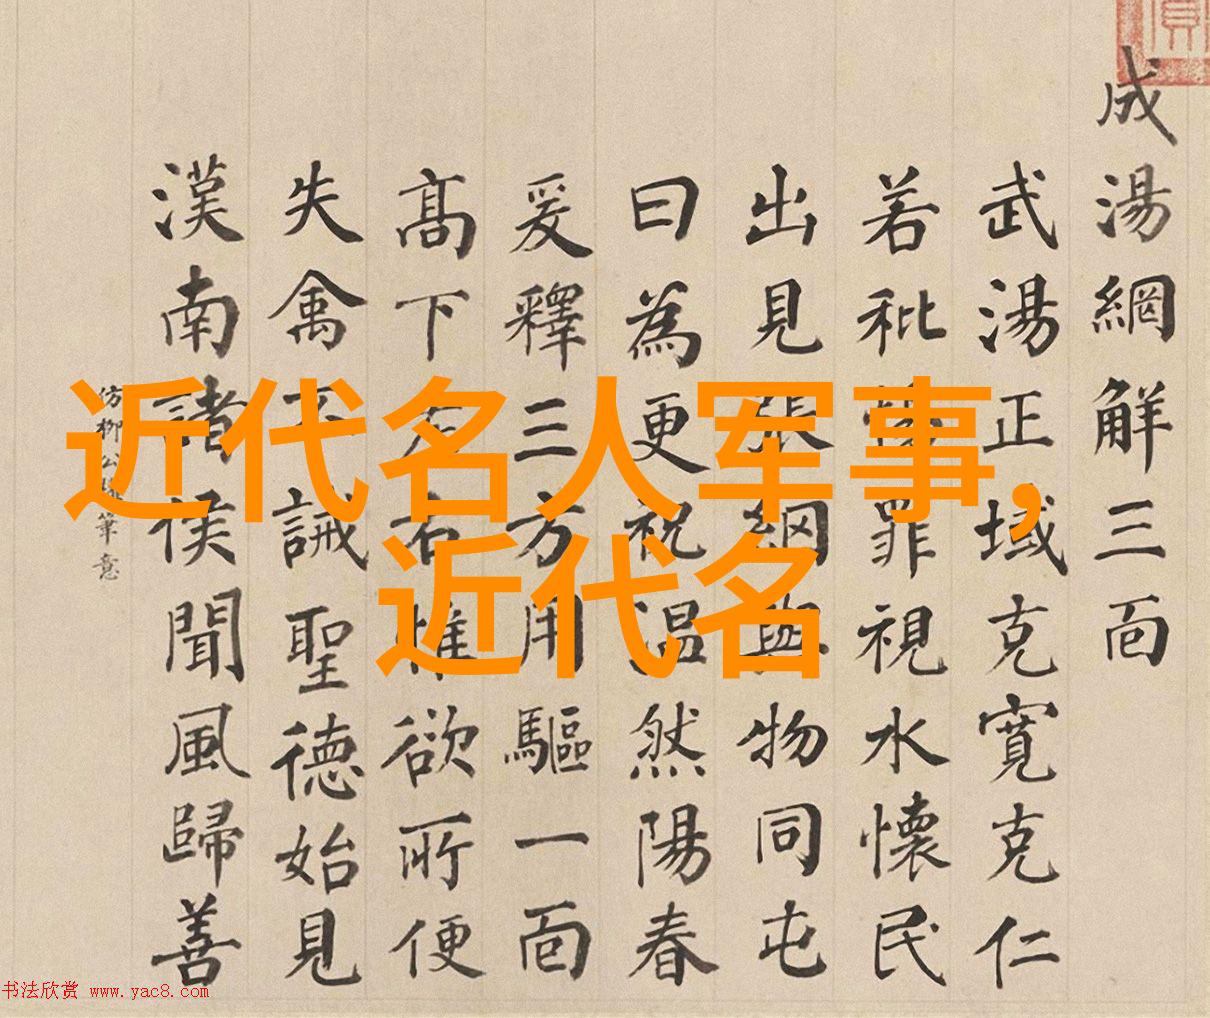 成湯網解三面
武湯正域克寬克仁
若秕罪視水懷民
出見張網與物同屯
曰為更祝温然陽春
爰釋三方用驅一面
髙下左右惟欲所便
失禽不誡聖德始見
漢南諸侯聞風歸善
仿柳公權筆意
近代名人军事,
近代名
书法欣赏 www.yac8.com